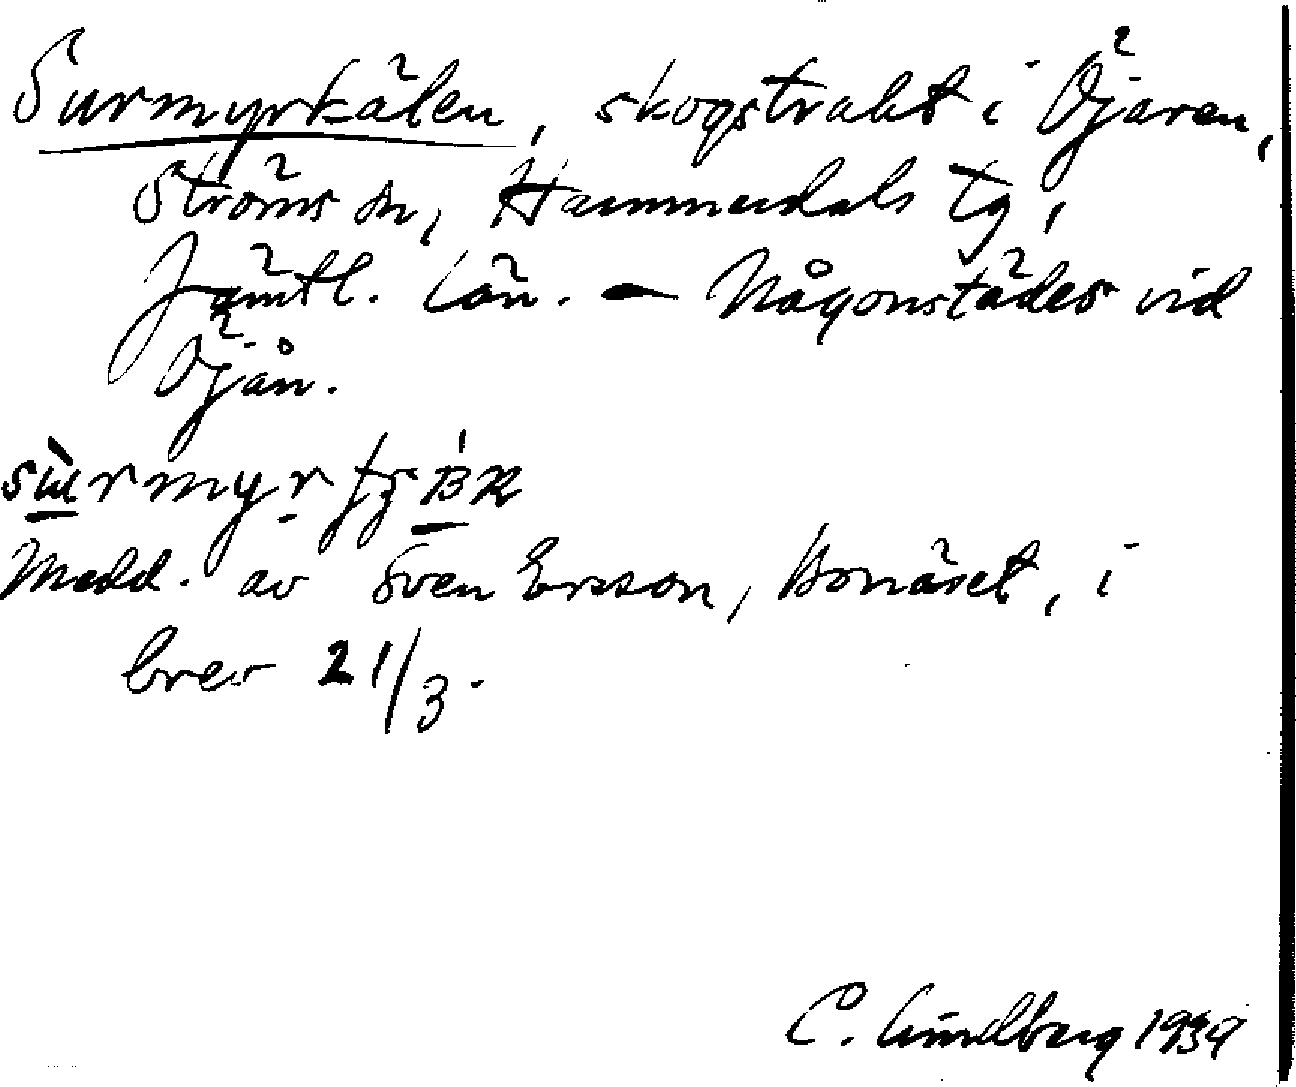 Surmyrkälen, skogstrakt i Öjaren,
Ströms sn, Hammerdals tg,
Jämtl. län. — Någonstädes vid
Öjån.
Medd. av Sven Ersson, Bonäset, i
brev 21/3.
C. Lindberg 1939